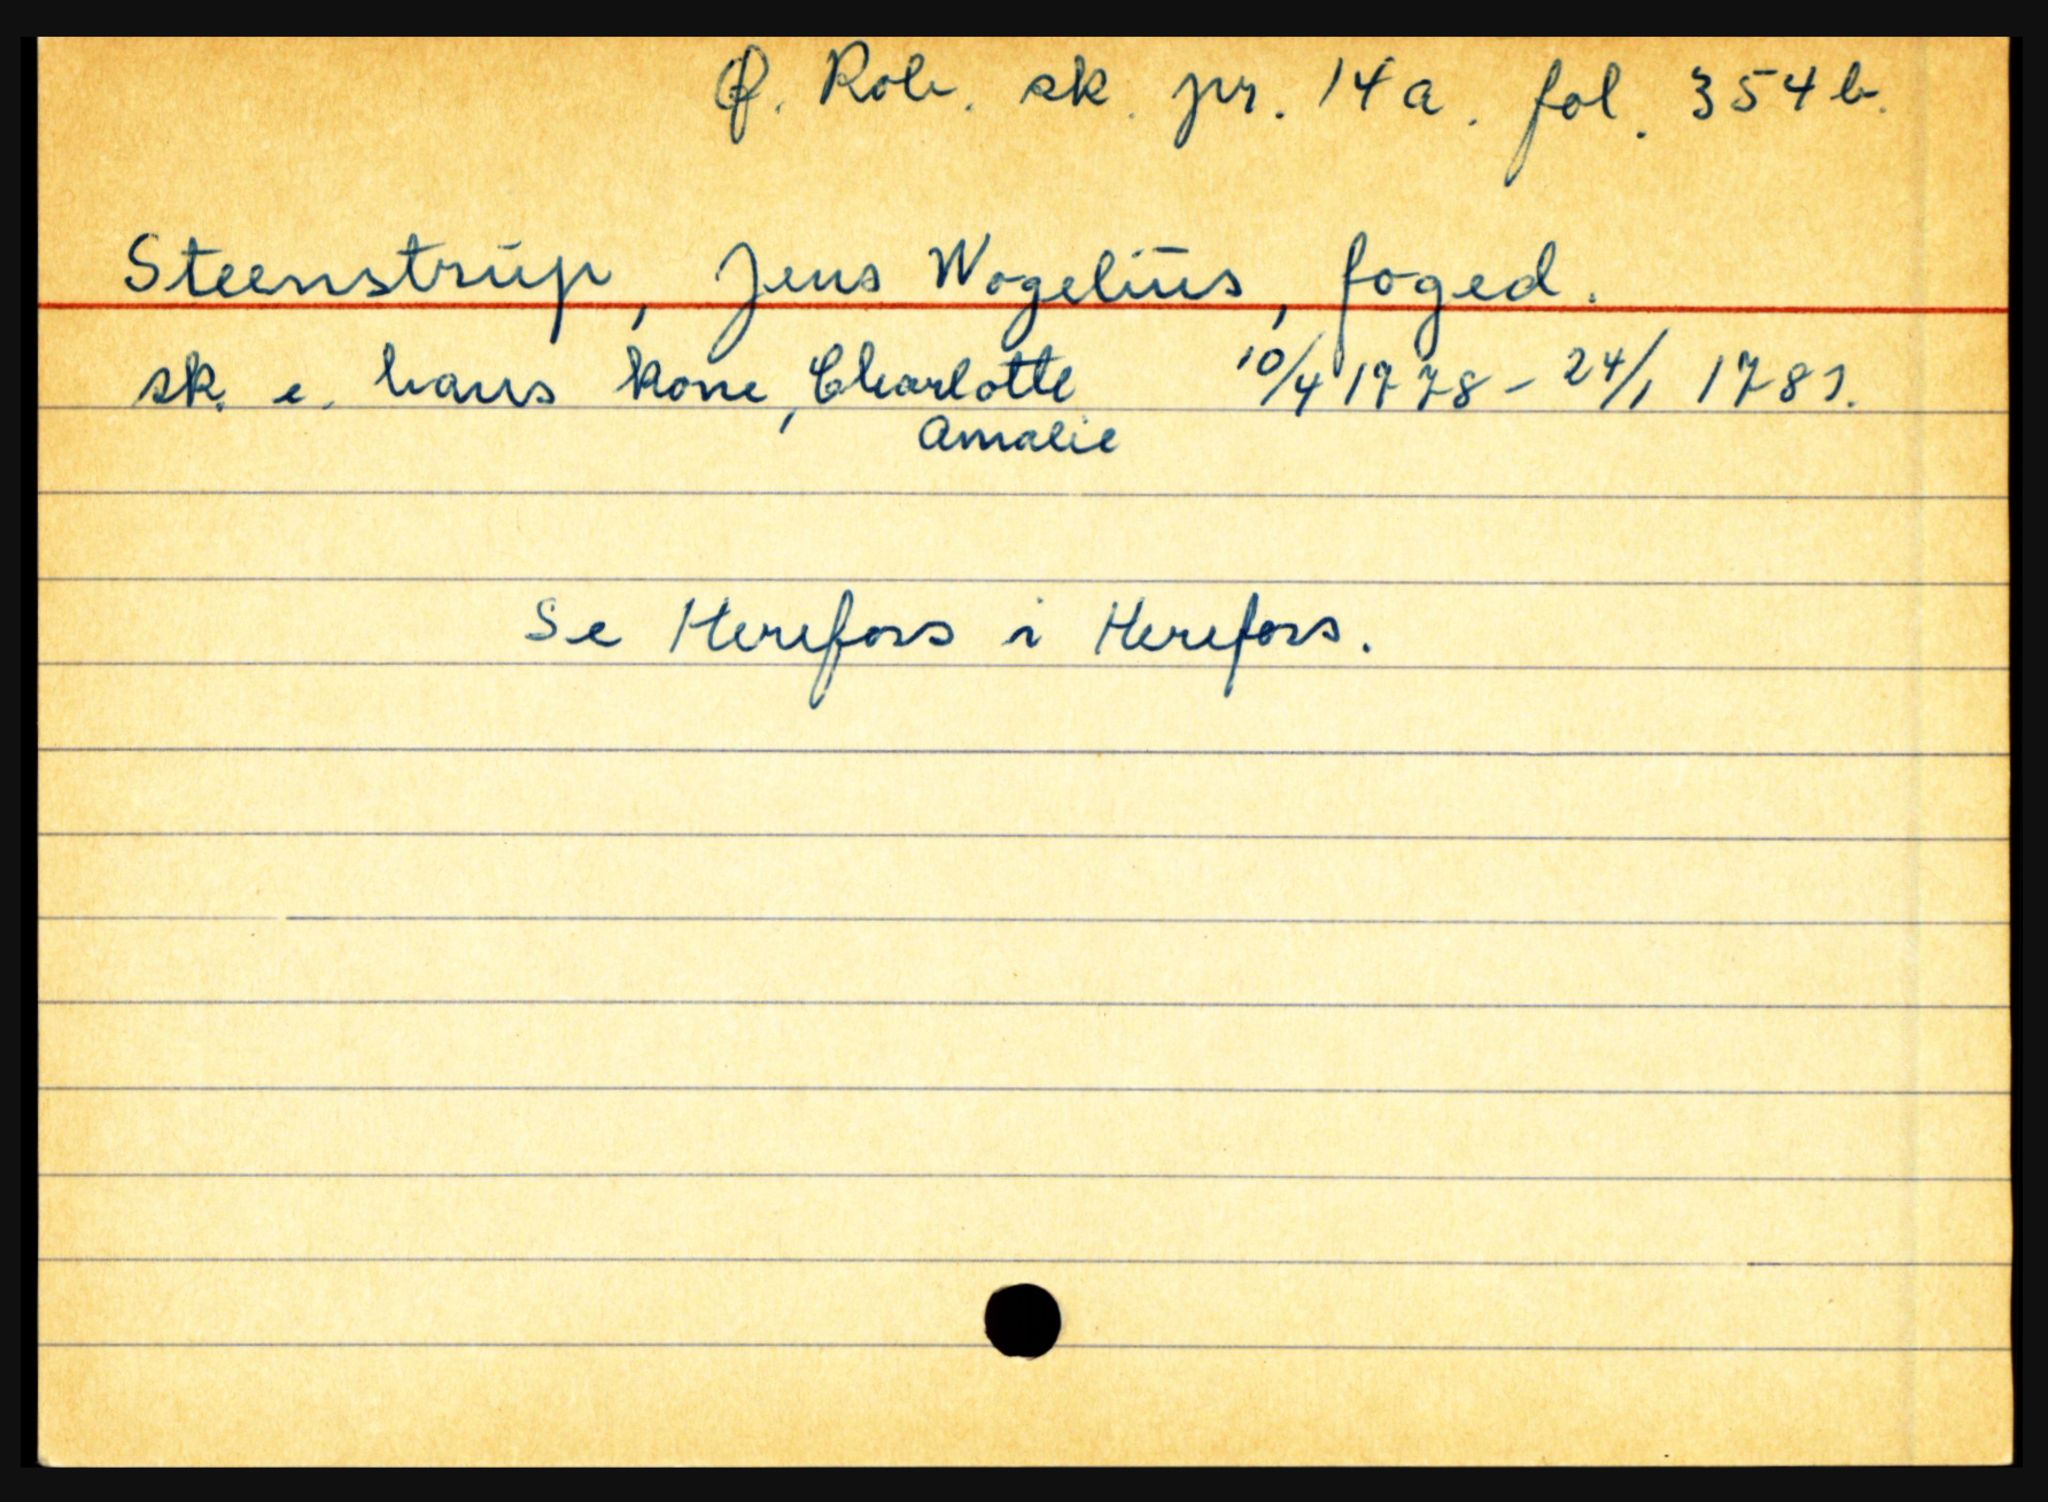 Ø. Rob. sk. pr. 14a. fol. 354b.
Steenstrup, Jens Wogelius, foged.
sk. e. hans kone, Charlotte 10/4 1778 - 24/1 1781.
Amalie
Se Herefoss i Herefoss.